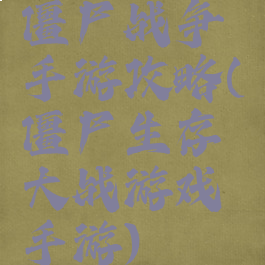 僵尸战争
手游攻略(
僵尸生存
大战游戏
手游)